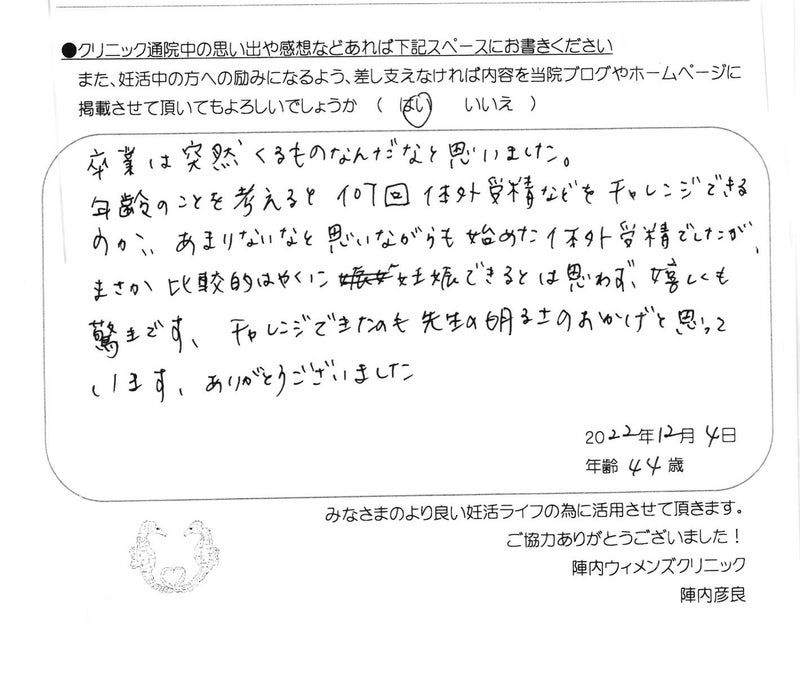 ●クリニック通院中の思い出や感想などあれば下記スペースにお書きください
また、妊活中の方への励みになるよう、差し支えなければ内容を当院ブログやホームページに
掲載させて頂いてもよろしいでしょうか （ はい　いいえ ）
卒業は突然くるものなんだなと思いました。
年齢のことを考えると何回体外受精などをチャレンジできる
のか、あまりないなと思いながらも始めた体外受精でしたが、
まさか比較的はやくに妊娠できるとは思わず、嬉しくも
驚きです、チャレンジできたのも先生の明るさのおかげと思って
います、ありがとうございました
2022年12月4日
年齢 44歳
みなさまのより良い妊活ライフの為に活用させて頂きます。
ご協力ありがとうございました！
陣内ウィメンズクリニック
陣内彦良